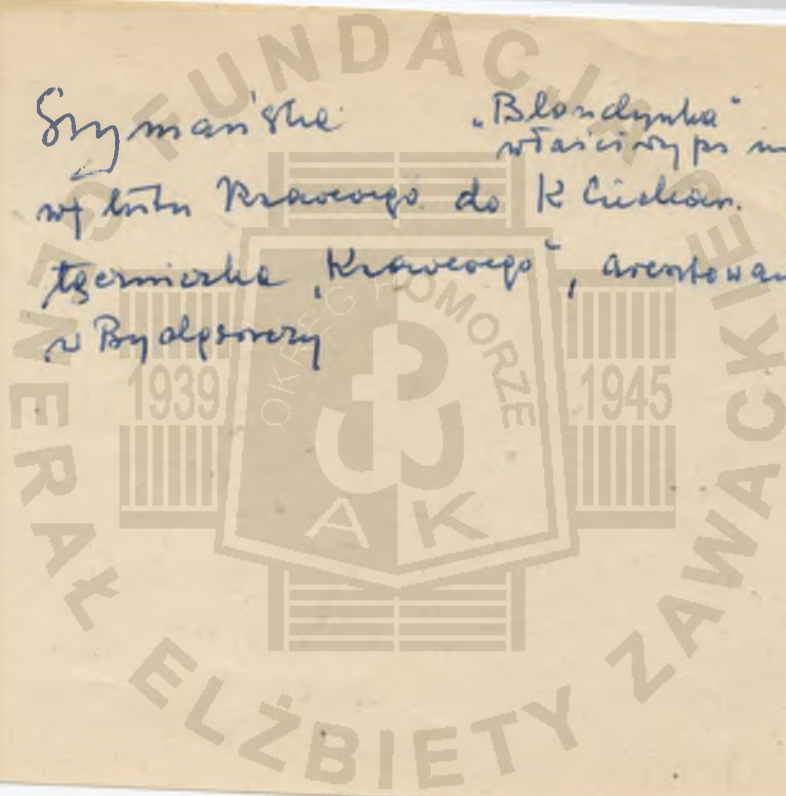 Szymańska „Blondynka"
właściwy ps
wg listu Krawcowego do K Ciechan.
łączniczka „Krawcowego", aresztowan
w Bydgoszczy
FUNDACJA GENERAŁ ELŻBIETY ZAWACKIEJ
OKRĘG POMORZE
1939 1945
AK